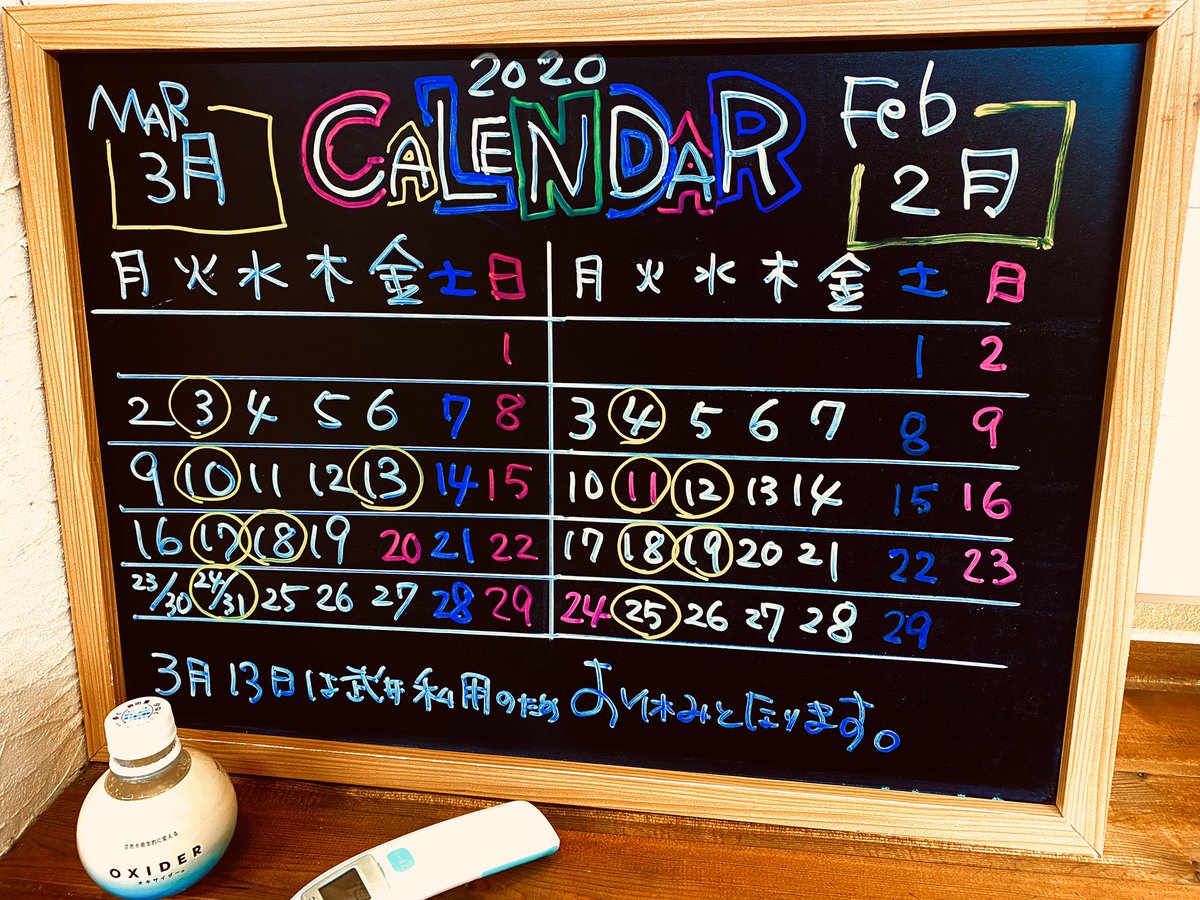 2020
MAR CALENDAR Feb
3月 2月
月 火 水 木 金 土 日 月 火 水 木 金 土 日
1 1 2
2 3 4 5 6 7 8 3 4 5 6 7 8 9
9 10 11 12 13 14 15 10 11 12 13 14 15 16
16 17 18 19 20 21 22 17 18 19 20 21 22 23
23/30 24/31 25 26 27 28 29 24 25 26 27 28 29
3月13日は武井私用のためお休みとなります。
空気を衛生的に変える
OXIDER
オキサイダー